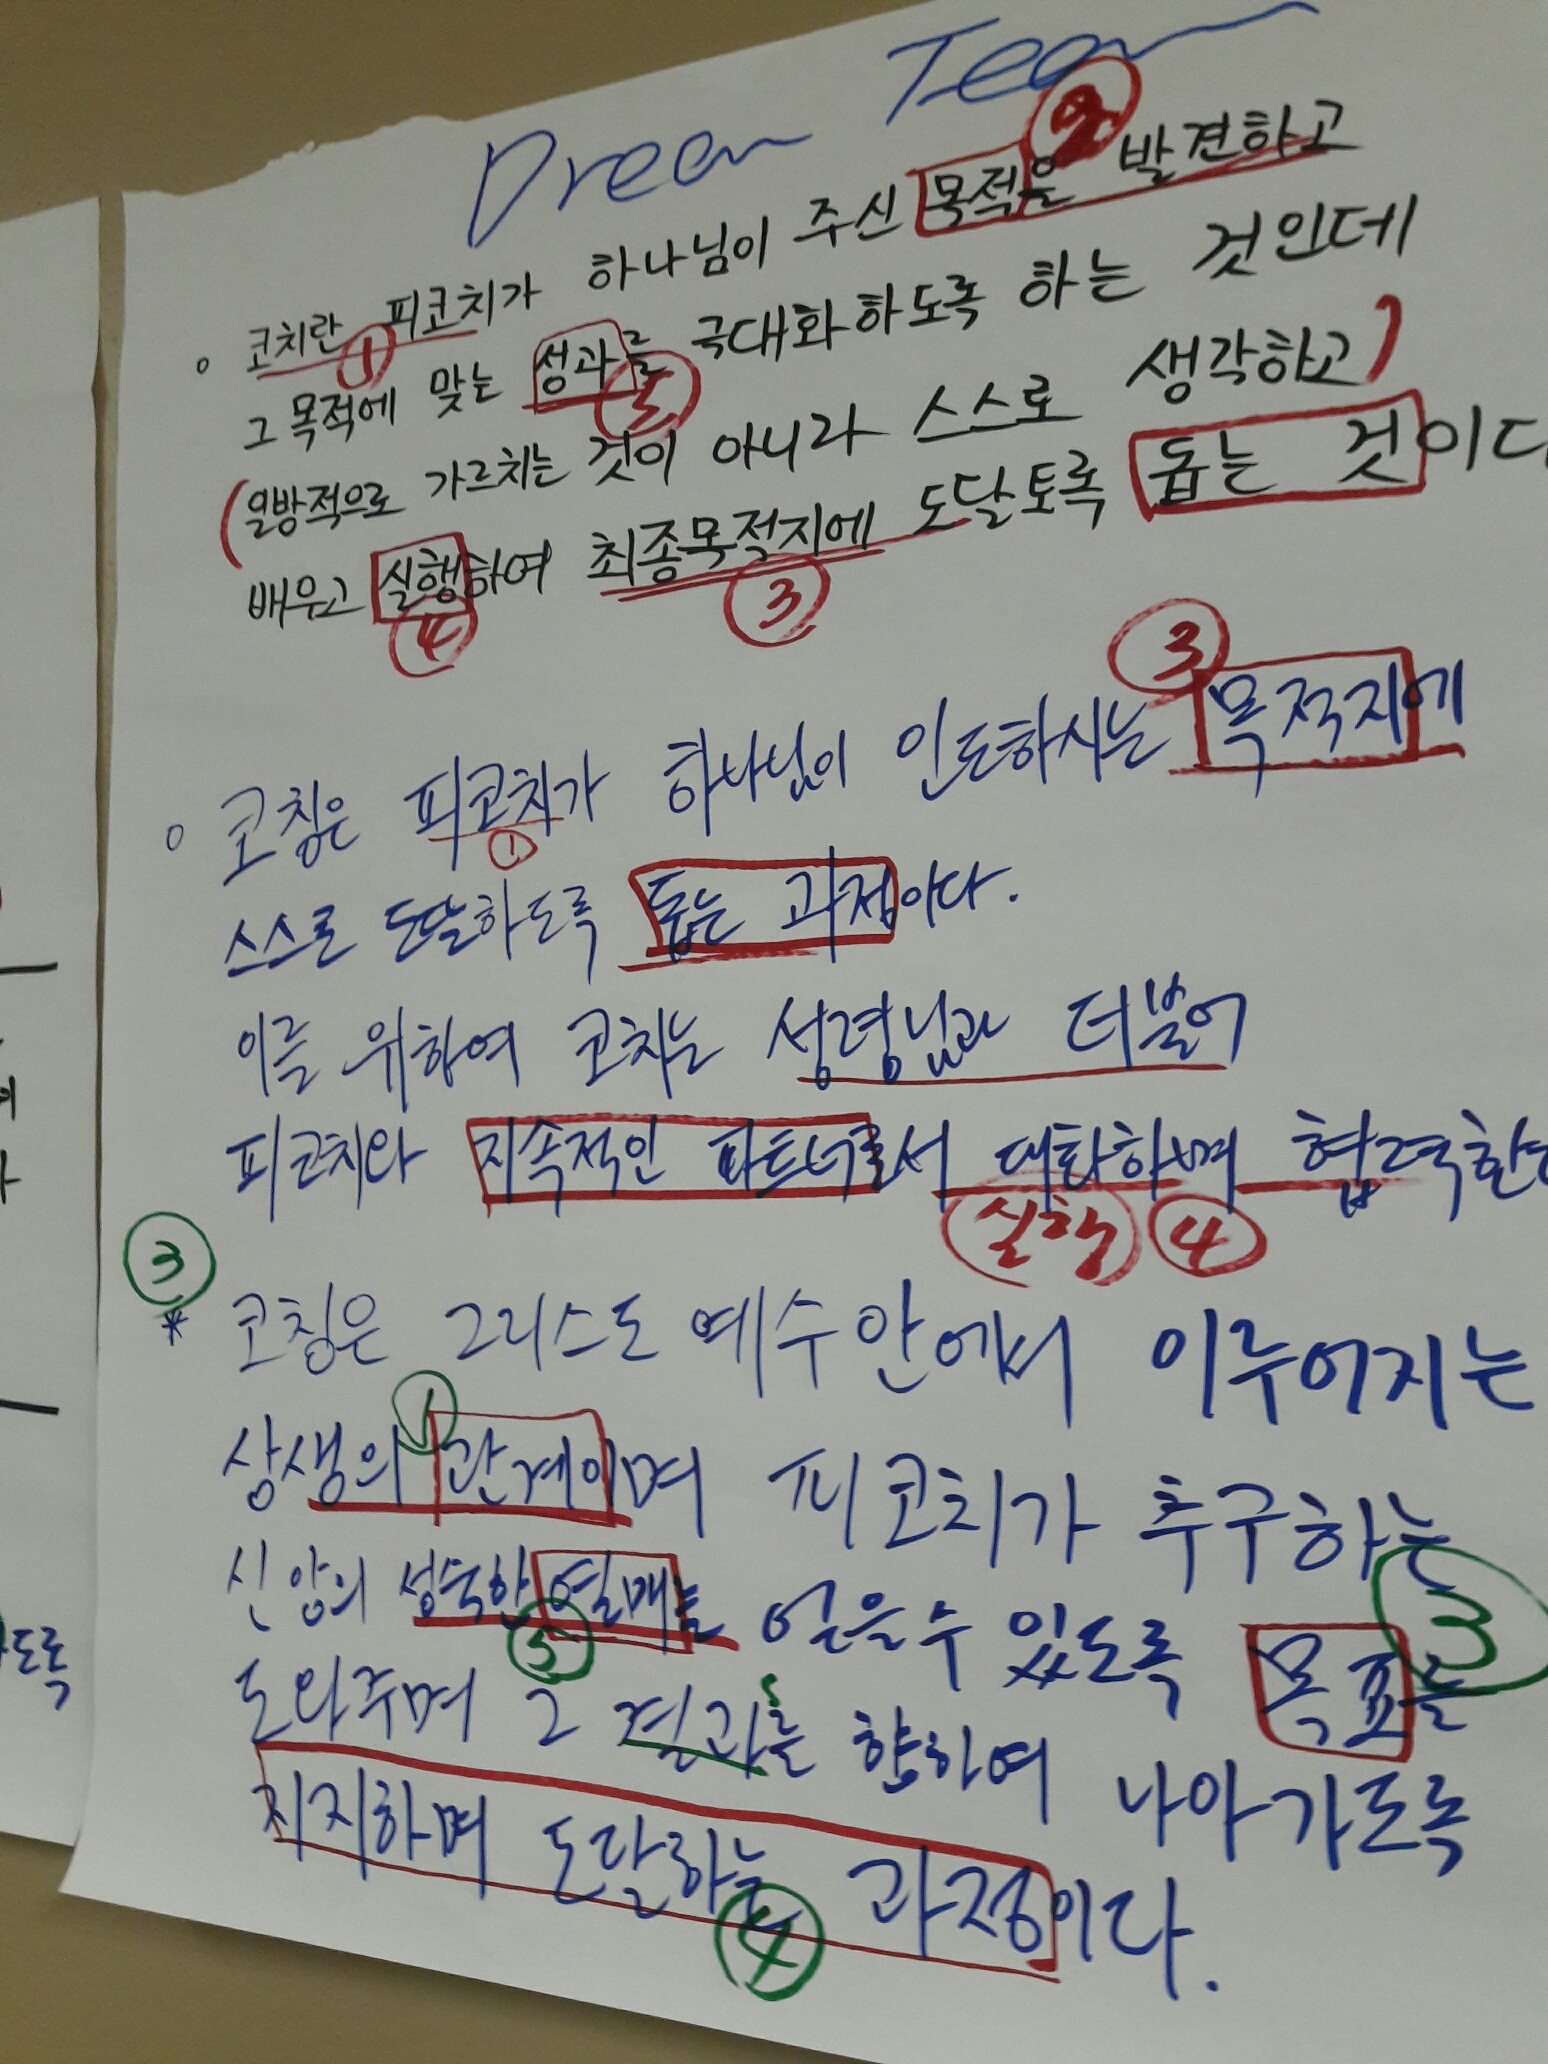 Dream Team
② 
◦ 코치란 피코치가 하나님이 주신 목적을 발견하고
①
그 목적에 맞는 성과를 극대화하도록 하는 것인데
⑤
(일방적으로 가르치는 것이 아니라 스스로 생각하고)
배우고 실행하여 최종목적지에 도달토록 돕는 것이다
④ ③
③
◦ 코칭은 피코치가 하나님이 인도하시는 목적지에
①
스스로 도달하도록 돕는 과정이다.
이를 위하여 코치는 성령님과 더불어
피코치와 지속적인 파트너로서 대화하며 협력한
실행 ④
③
* 코칭은 그리스도 예수 안에서 이루어지는
①
상생의 관계이며 피코치가 추구하는
신앙의 성숙한 열매를 얻을 수 있도록 목표를
⑤ ③
도와주며 그 결과를 향하여 나아가도록
지지하며 도달하는 과정이다.
④
도록